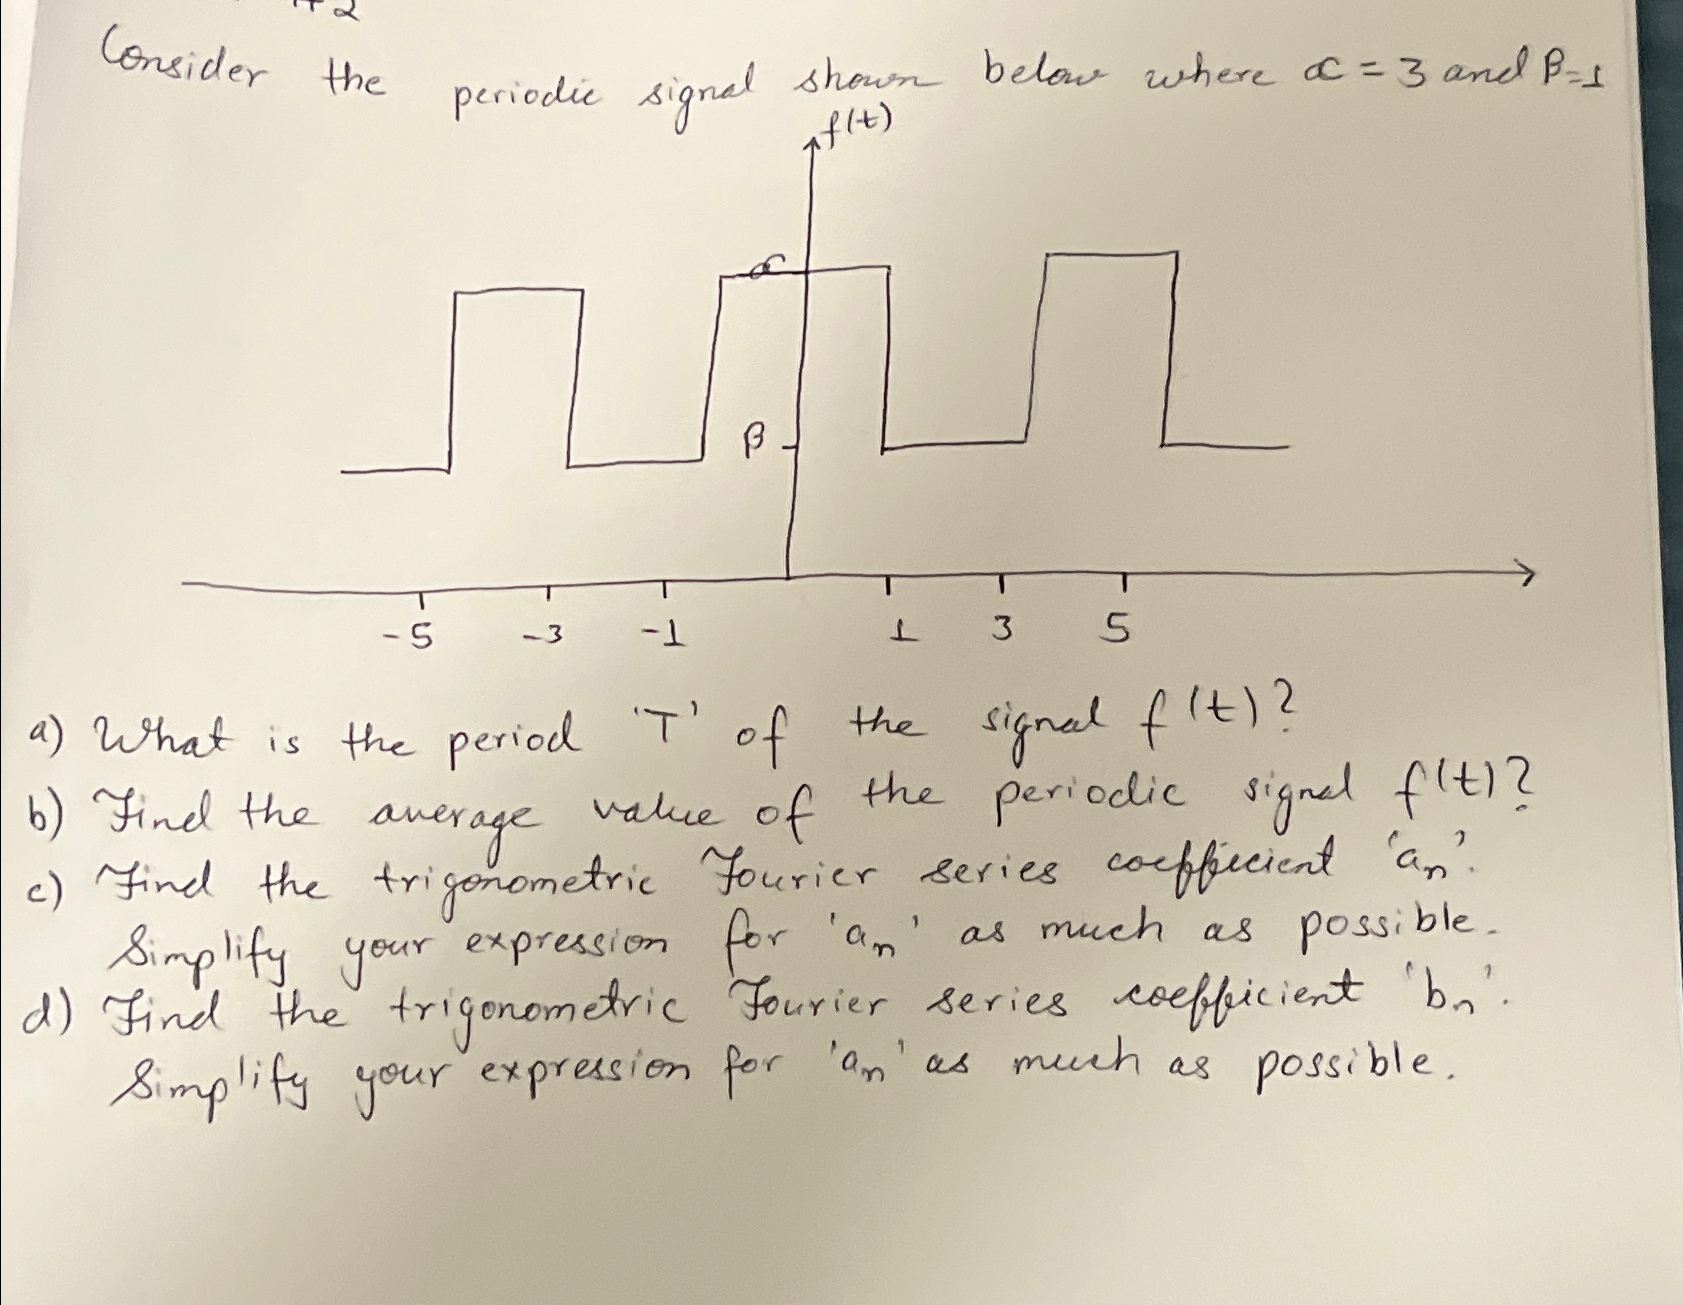 +2
Consider the periodic signal shown below where α = 3 and β=1
f(t)
α
β
-5 -3 -1 1 3 5
a) What is the period 'T' of the signal f(t)?
b) Find the average value of the periodic signal f(t)?
c) Find the trigonometric Fourier series coefficient 'an'.
Simplify your expression for 'an' as much as possible.
d) Find the trigonometric Fourier series coefficient 'bn'.
Simplify your expression for 'an' as much as possible.